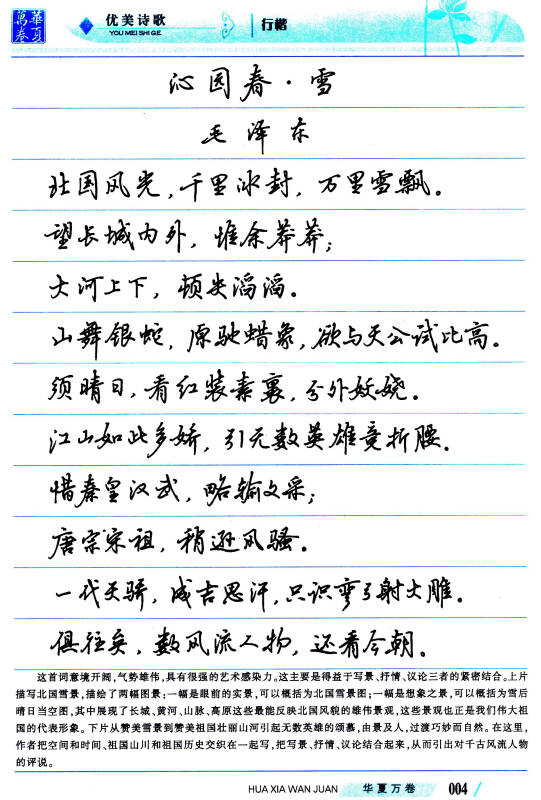 華夏
萬卷
优美诗歌
YOU MEI SHI GE
行楷
沁园春·雪
毛泽东
北国风光,千里冰封,万里雪飘。
望长城内外,惟余莽莽;
大河上下,顿失滔滔。
山舞银蛇,原驰蜡象,欲与天公试比高。
须晴日,看红装素裹,分外妖娆。
江山如此多娇,引无数英雄竞折腰。
惜秦皇汉武,略输文采;
唐宗宋祖,稍逊风骚。
一代天骄,成吉思汗,只识弯弓射大雕。
俱往矣,数风流人物,还看今朝。
这首词意境开阔,气势雄伟,具有很强的艺术感染力。这主要是得益于写景、抒情、议论三者的紧密结合。上片
描写北国雪景,描绘了两幅图景:一幅是眼前的实景,可以概括为北国雪景图;一幅是想象之景,可以概括为雪后
晴日当空图,其中展现了长城、黄河、山脉、高原这些最能反映北国风貌的雄伟景观,这些景观也正是我们伟大祖
国的代表形象。下片从赞美雪景到赞美祖国壮丽山河引起无数英雄的颂慕,由景及人,过渡巧妙而自然。在这里,
作者把空间和时间、祖国山川和祖国历史交织在一起写,把写景、抒情、议论结合起来,从而引出对千古风流人物
的评说。
HUA XIA WAN JUAN
华夏万卷
004